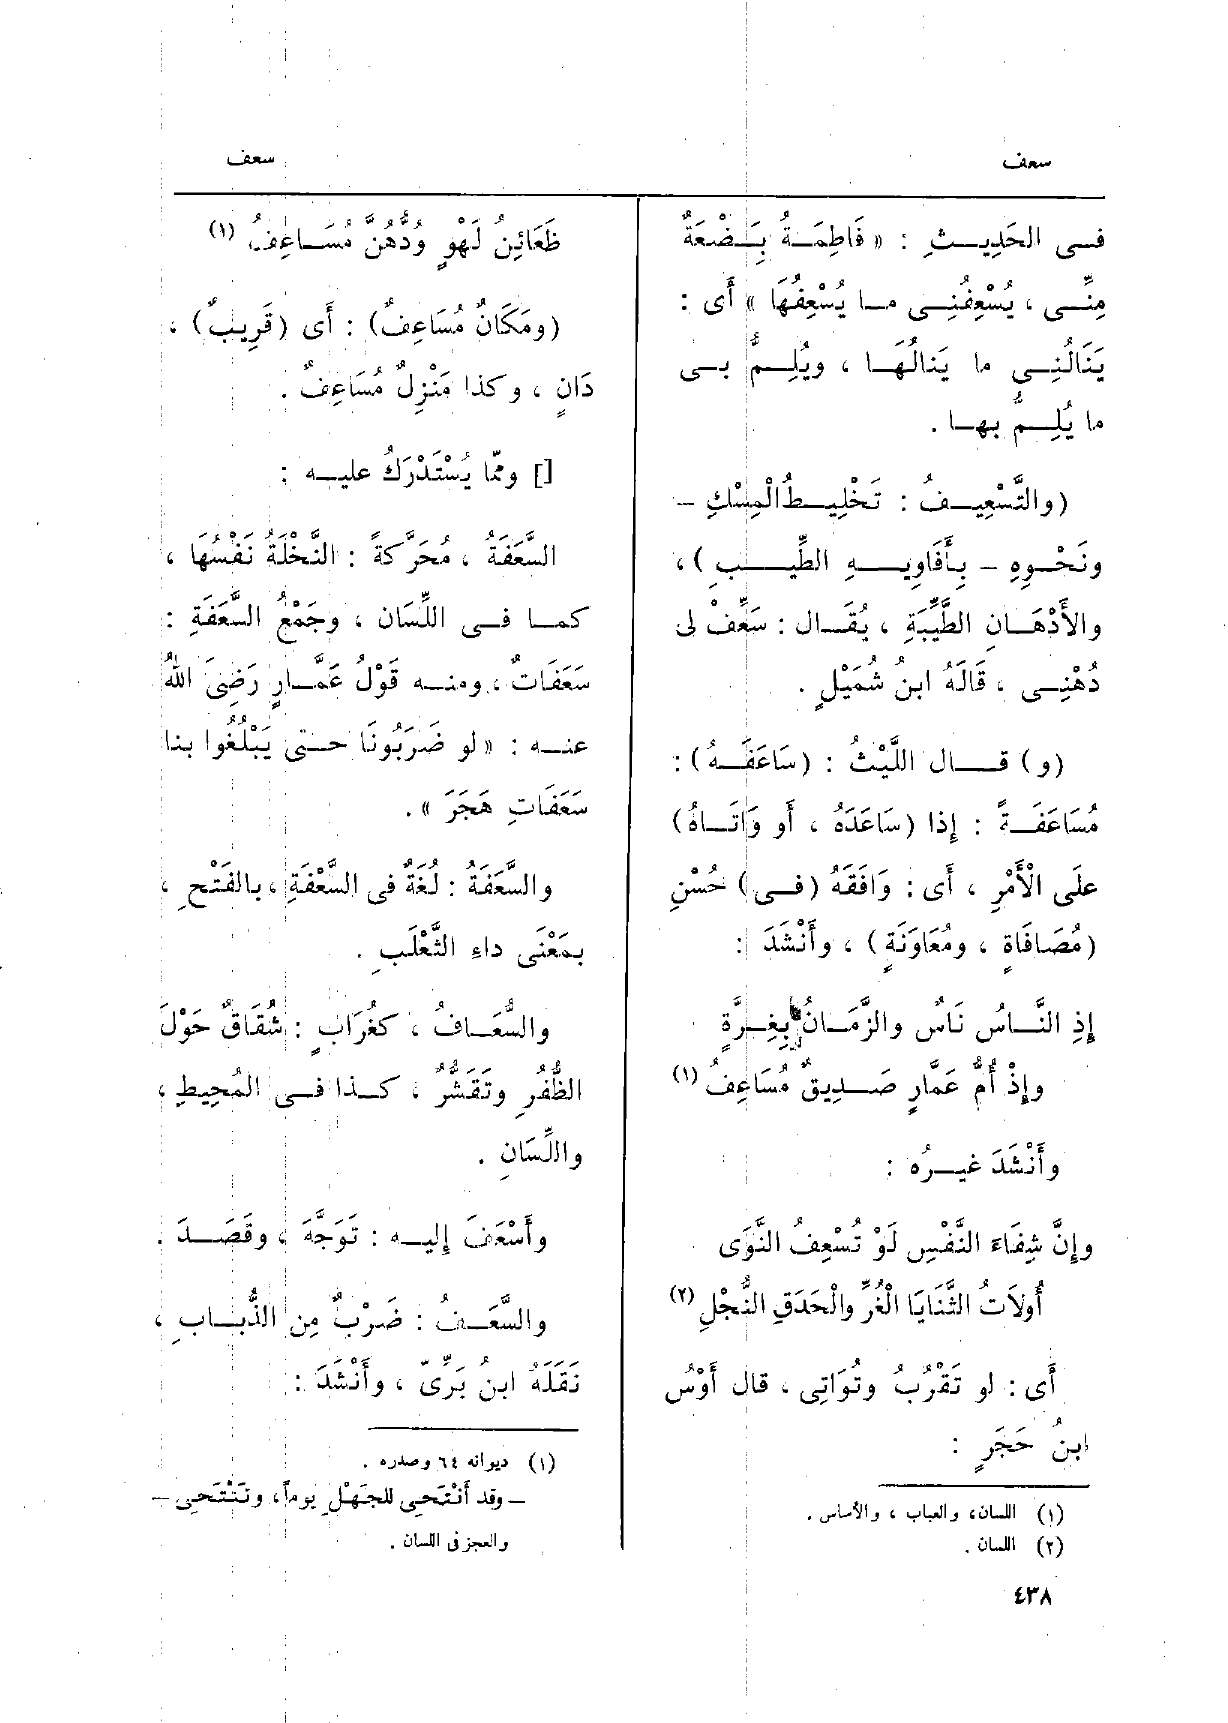 سعف
سعف
فى الحَدِيثِ : « فَاطِمَةُ بَضْعَةٌ
مِنِّى ، يُسْعِفُنِى ما يُسْعِفُهَا » أَى :
يَنَالُنِى ما يَنَالُهَا ، ويُلِمُّ بى
ما يُلِمُّ بها .
(والتَّسْعِيفُ : تَخْلِيطُ الْمِسْكِ –
ونَحْوِهِ – بِأَفَاوِيهِ الطِّيبِ ) ،
والأَدْهَانِ الطَّيِّبَةِ ، يُقَال : سَعِّفْ لى
دُهْنِى ، قَالَهُ ابنُ شُمَيْلٍ .
(و) قال اللَّيْثُ : (سَاعَفَهُ) :
مُسَاعَفَةً : إِذا (سَاعَدَهُ ، أَو وَاتَاهُ)
علَى الْأَمْرِ ، أَى : وَافَقَهُ (فى) حُسْنِ
(مُصَافَاةٍ ، ومُعَاوَنَةٍ) ، وأَنْشَدَ :
إِذِ النَّاسُ نَاسٌ والزَّمَانُ بِغِرَّةٍ
وإِذْ أُمُّ عَمَّارٍ صَدِيقٌ مُسَاعِفُ (١)
وأَنْشَدَ غيرُه :
وإِنَّ شِفَاءَ النَّفْسِ لَوْ تُسْعِفُ النَّوَى
أُولَاتُ الثَّنَايَا الْغُرِّ والْحَدَقِ النُّجْلِ (٢)
أَى : لو تَقْرُبُ وتُوَاتِى ، قال أَوْسُ
ابنُ حَجَرٍ :
(١) اللسان، والعباب ، والأساس .
(٢) اللسان .
ظَعَائِنُ لَهْوٍ وُدُّهُنَّ مُسَاعِفُ (١)
(ومَكَانٌ مُسَاعِفٌ) : أَى (قَرِيبٌ) ،
دَانٍ ، وكذا مَنْزِلٌ مُسَاعِفٌ .
[] وممّا يُسْتَدْرَكُ عليه :
السَّعَفَةُ ، مُحَرَّكةً : النَّخْلَةُ نَفْسُهَا ،
كما فى اللِّسَان ، وجَمْعُ السَّعَفَةِ :
سَعَفَاتٌ ، ومنه قَوْلُ عَمَّارٍ رَضِىَ اللهُ
عنه : « لو ضَرَبُونَا حتى يَبْلُغُوا بنا
سَعَفَاتِ هَجَرَ » .
والسَّعَفَةُ : لُغَةٌ فى السَّعْفَةِ ، بالفَتْحِ ،
بمَعْنَى داءِ الثَّعْلَبِ .
والسُّعَافُ ، كغُرَابٍ : شُقَاقٌ حَوْلَ
الظُّفُرِ وتَقَشُّرٌ ، كذا فى المُحِيطِ ،
واللِّسَانِ .
وأَسْعَفَ إِليه : تَوَجَّهَ ، وقَصَدَ .
والسَّعَفُ : ضَرْبٌ مِن الذُّبابِ ،
نَقَلَهُ ابنُ بَرِّىّ ، وأَنْشَدَ :
(١) ديوانه ٦٤ وصدره .
– وقد أَنْتَحِى للجَهْلِ يوماً، وتَنْتَحِى –
والعجز فى اللسان .
٤٣٨